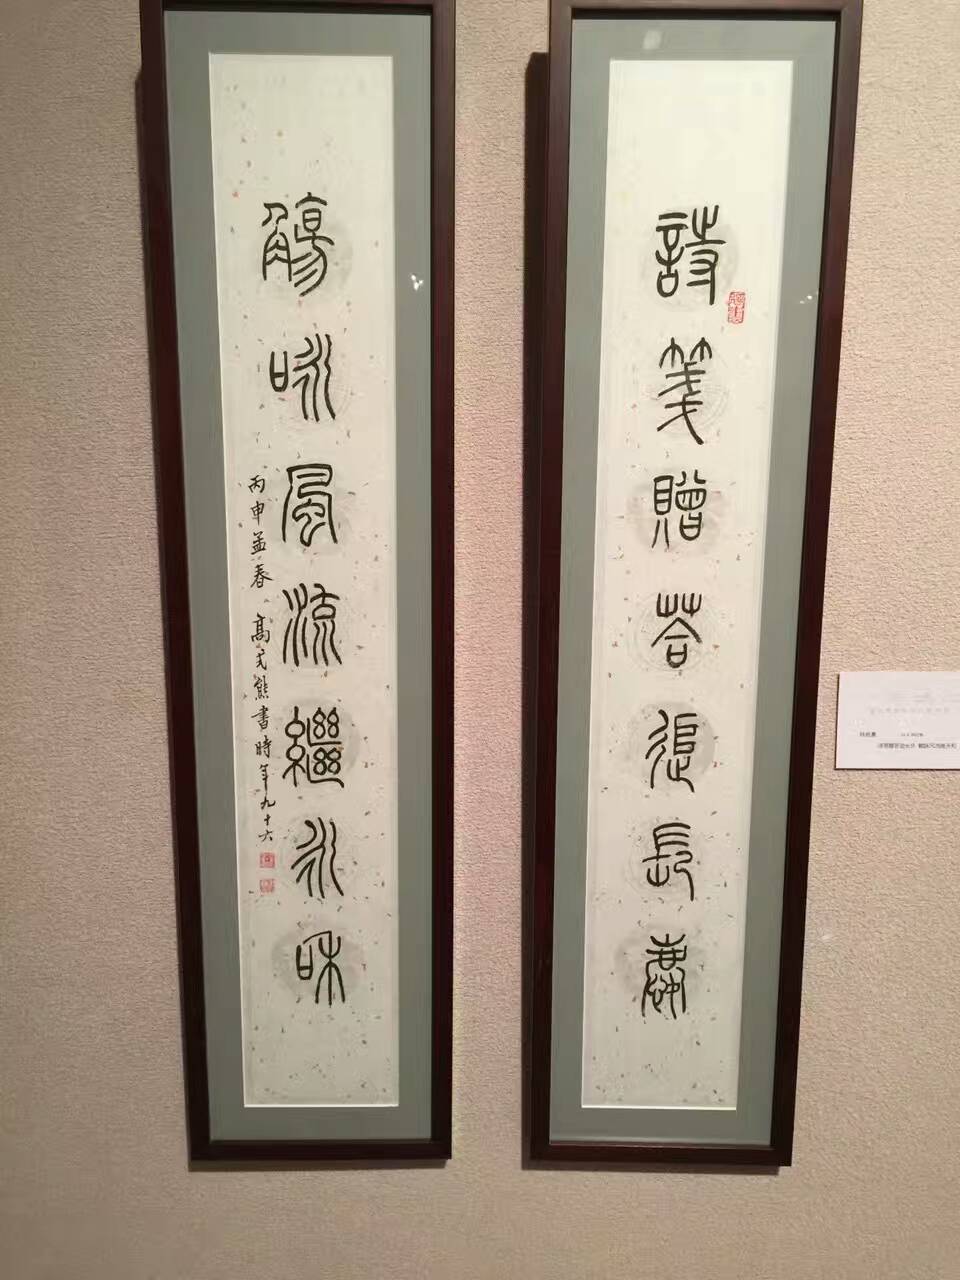 詩箋贈荅追長慶
觴咏風流繼永和
丙申孟春 高式熊書時年九十六